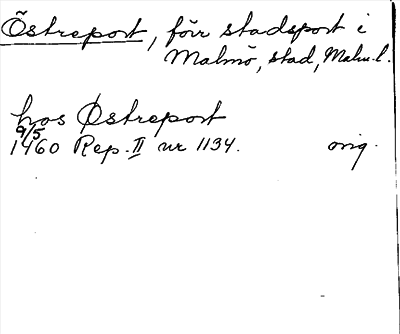 Östreport, förr stadsport i
Malmö, stad, Malm.l.
hos Østreport
9/5
1460 Rep. II nr 1134. orig.